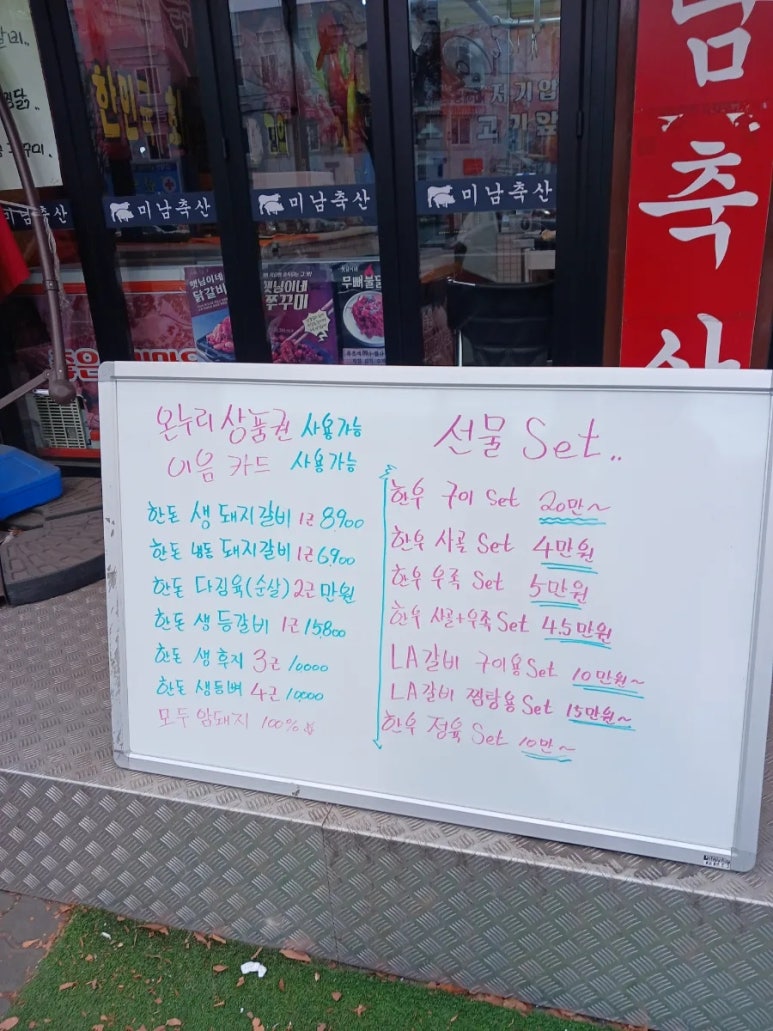 갈비..
한민국 한
저기압
고기앞
미남축산
미남축산
미남축산
미남축산
남축산
옛날이네
닭갈비
옛날이네
쭈꾸미
무뼈불닭
좋은
온누리 상품권 사용가능
이음 카드 사용가능
한돈 생 돼지갈비 1근 8,900
한돈 냉동 돼지갈비 1근 6,900
한돈 다짐육(순살) 2근 만원
한돈 생 등갈비 1근 15,800
한돈 생후지 3근 10,000
한돈 생등뼈 4근 10,000
모두 암돼지 100%
선물 Set..
한우 구이 Set 20만~
한우 사골 Set 4만원
한우 우족 Set 5만원
한우 사골+우족 Set 4.5만원
LA갈비 구이용 Set 10만원~
LA갈비 찜탕용 Set 15만원~
한우 정육 Set 10만~